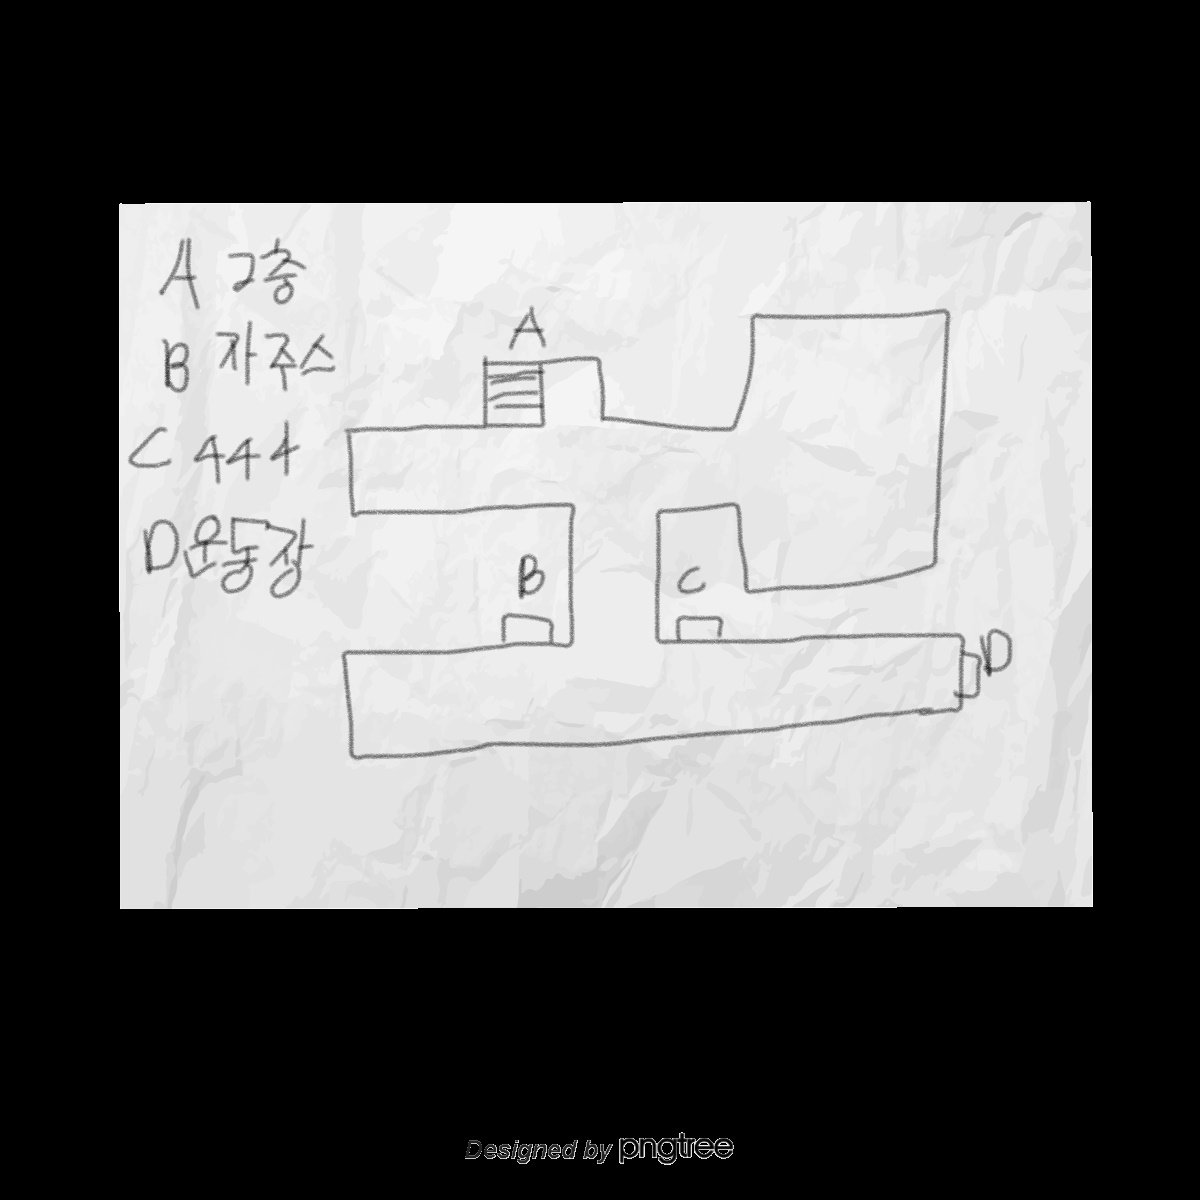 A 2층
B 자주스
C 444
D 운동장
A
B
C
D
Designed by pngtree